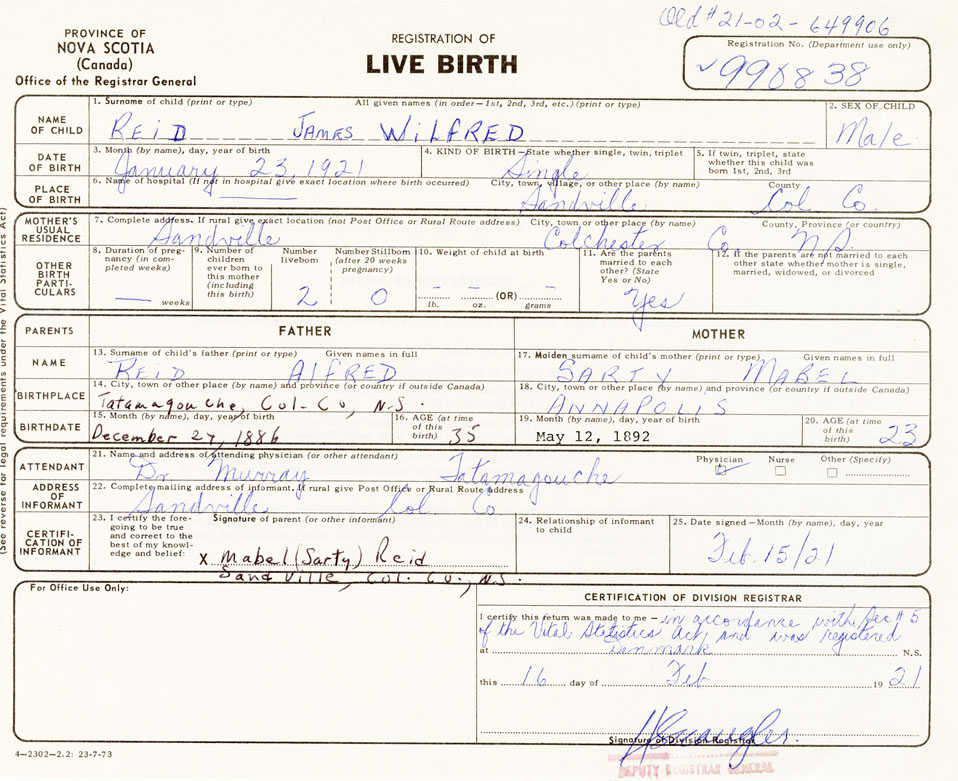 Old # 21-02-649906
PROVINCE OF
NOVA SCOTIA
(Canada)
Office of the Registrar General
REGISTRATION OF
LIVE BIRTH
Registration No. (Department use only)
990838
NAME OF CHILD
1. Surname of child (print or type) All given names (in order—1st, 2nd, 3rd, etc.) (print or type)
REID JAMES WILFRED
2. SEX OF CHILD
Male
DATE OF BIRTH
3. Month (by name), day, year of birth
January 23, 1921
4. KIND OF BIRTH—State whether single, twin, triplet
Single
5. If twin, triplet, state
whether this child was
born 1st, 2nd, 3rd
PLACE OF BIRTH
6. Name of hospital (If not in hospital give exact location where birth occurred) City, town, village, or other place (by name) County
Sandville Col Co.
MOTHER'S USUAL RESIDENCE
7. Complete address. If rural give exact location (not Post Office or Rural Route address) City, town or other place (by name) County, Province (or country)
Sandville Colchester Co N.S.
OTHER BIRTH PARTI-CULARS
8. Duration of preg-
nancy (in com-
pleted weeks)
— weeks
9. Number of
children
ever born to
this mother
(including
this birth)
Number
liveborn
2
Number Stillborn
(after 20 weeks
pregnancy)
0
10. Weight of child at birth
- - -
(OR)
lb. oz. grams
11. Are the parents
married to each
other? (State
Yes or No)
Yes
12. If the parents are not married to each
other state whether mother is single,
married, widowed, or divorced
PARENTS FATHER MOTHER
NAME
13. Surname of child's father (print or type) Given names in full
REID AlFRED
17. Maiden surname of child's mother (print or type) Given names in full
SARTY MABEL
BIRTHPLACE
14. City, town or other place (by name) and province (or country if outside Canada)
Tatamagouche, Col-Co, N.S.
18. City, town or other place (by name) and province (or country if outside Canada)
ANNAPOLIS
BIRTHDATE
15. Month (by name), day, year of birth
December 27, 1886
16. AGE (at time
of this
birth) 35
19. Month (by name), day, year of birth
May 12, 1892
20. AGE (at time
of this
birth) 23
ATTENDANT
21. Name and address of attending physician (or other attendant)
Dr Murray Tatamagouche
Physician Nurse Other (Specify)
ADDRESS OF INFORMANT
22. Complete mailing address of informant. If rural give Post Office or Rural Route address
Sandville Col. Co
CERTIFI-CATION OF INFORMANT
23. I certify the fore-
going to be true
and correct to the
best of my knowl-
edge and belief:
Signature of parent (or other informant)
X Mabel (Sarty) Reid
Sandville, Col. Co., N.S.
24. Relationship of informant
to child
25. Date signed—Month (by name), day, year
Feb. 15/21
For Office Use Only:
CERTIFICATION OF DIVISION REGISTRAR
I certify this return was made to me – in accordance with Sec # 5
of the Vital Statistics Act, and was registered
at Denmark N.S.
this 16 day of Feb 19 21
Signature of Division Registrar
DEPUTY REGISTRAR GENERAL
4—2302—2.2: 23-7-73
(See reverse for legal requirements under the Vital Statistics Act)